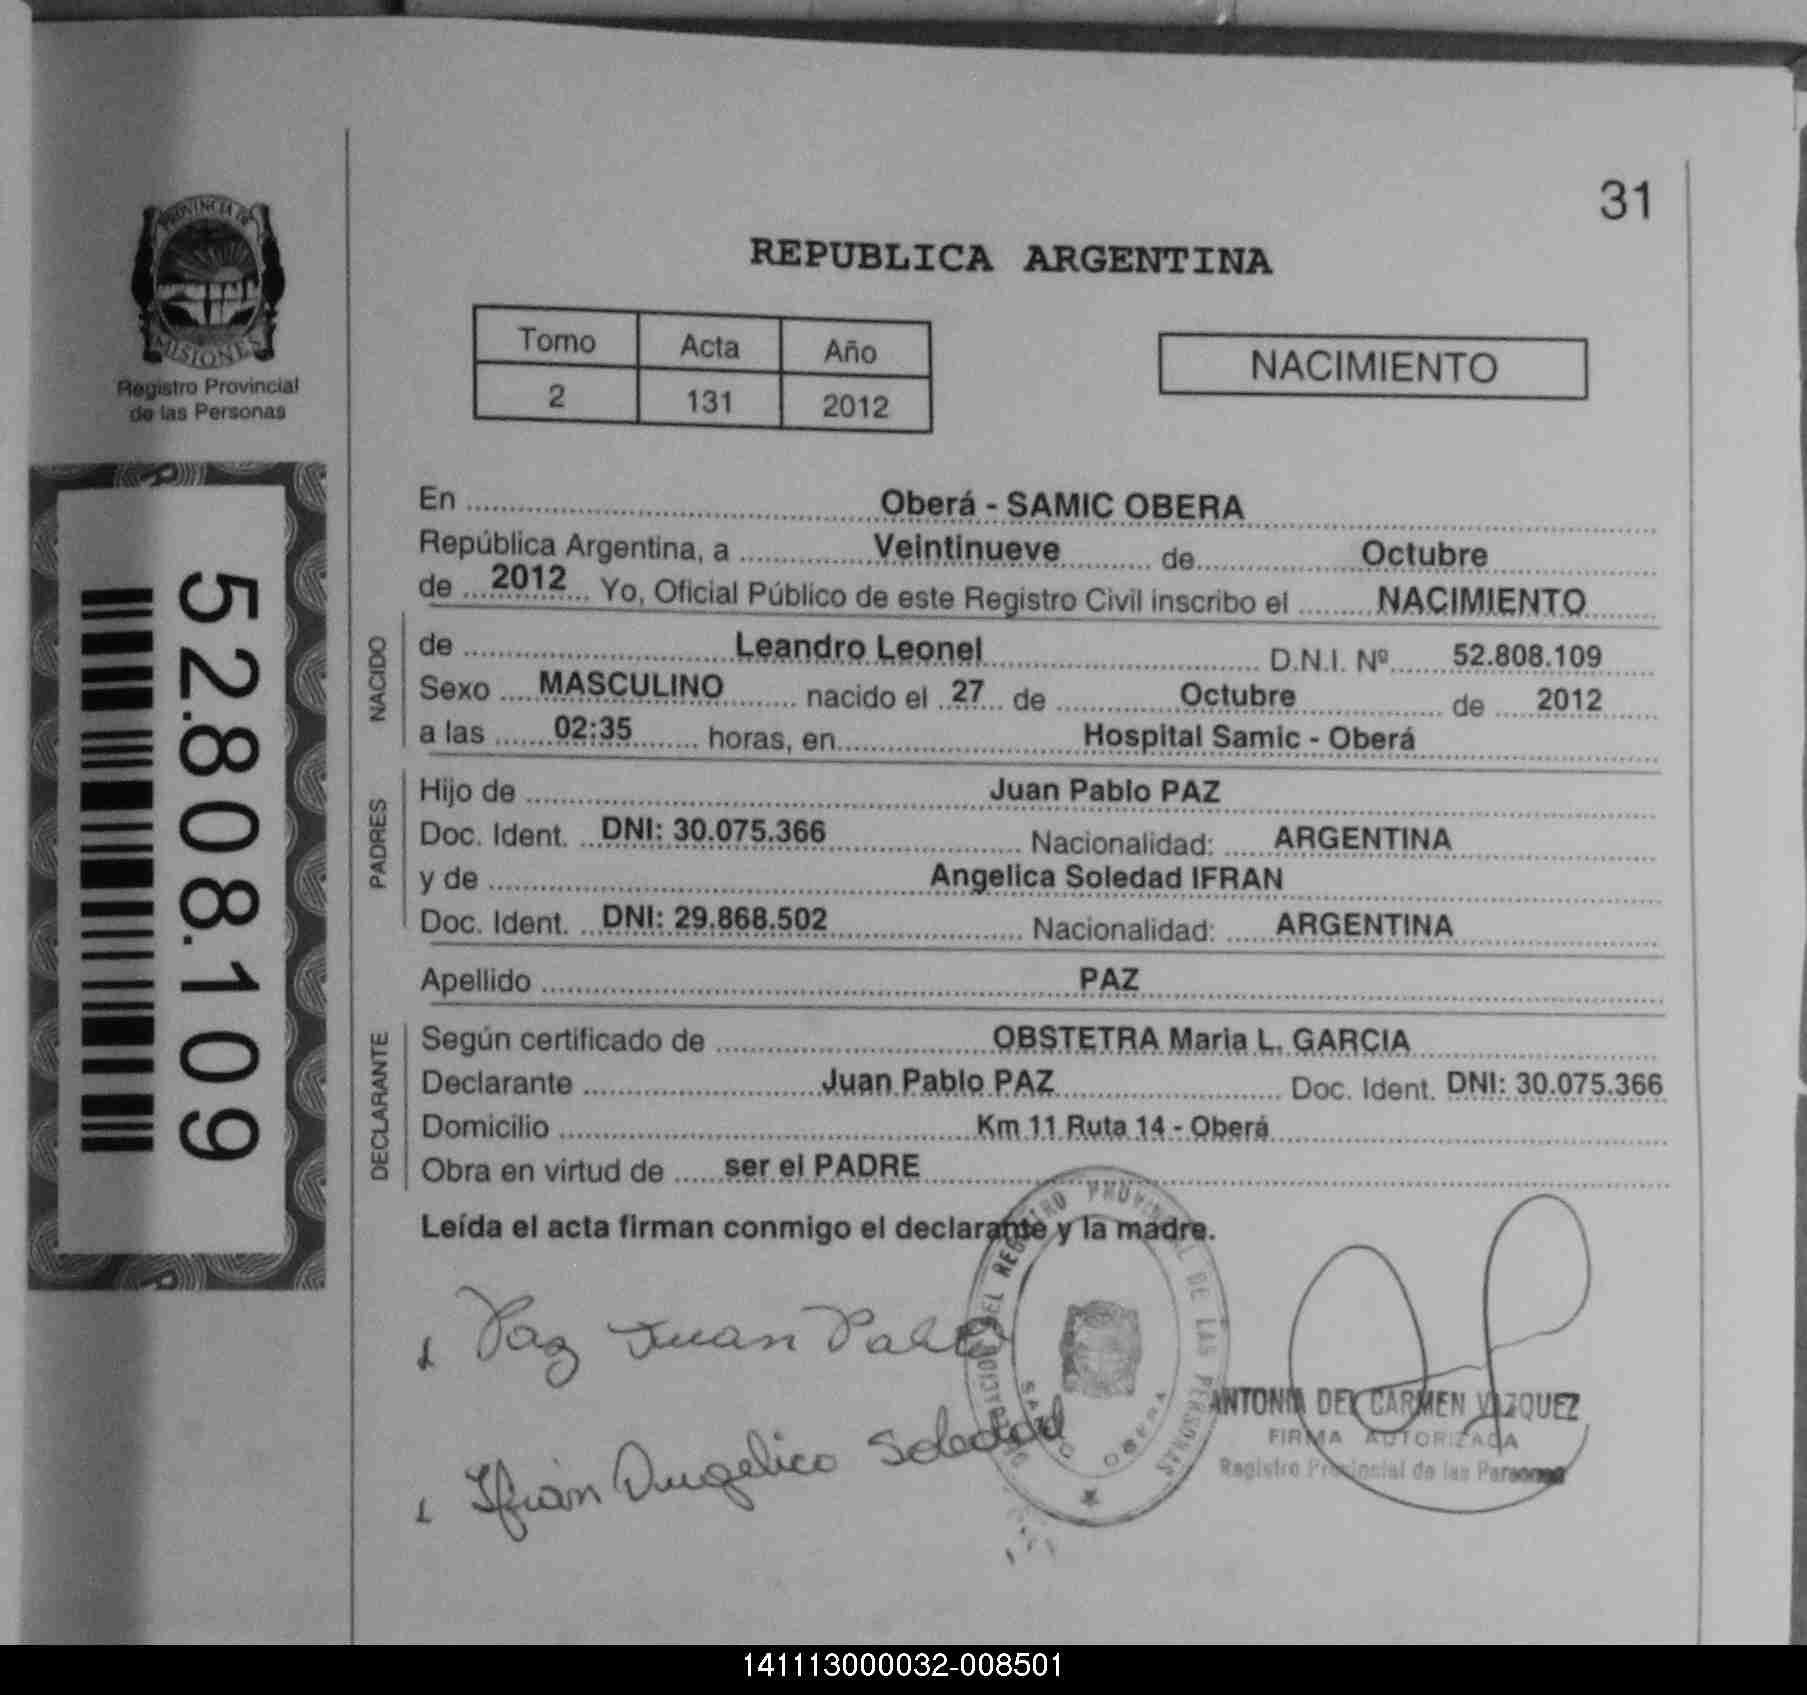 31
PROVINCIA DE
MISIONES
Registro Provincial
de las Personas
REPUBLICA ARGENTINA
Tomo Acta Año
2 131 2012
NACIMIENTO
52.808.109
En Oberá - SAMIC OBERA
República Argentina, a Veintinueve de Octubre
de 2012 Yo, Oficial Público de este Registro Civil inscribo el NACIMIENTO
NACIDO
de Leandro Leonel D.N.I. Nº 52.808.109
Sexo MASCULINO nacido el 27 de Octubre de 2012
a las 02:35 horas, en Hospital Samic - Oberá
PADRES
Hijo de Juan Pablo PAZ
Doc. Ident. DNI: 30.075.366 Nacionalidad: ARGENTINA
y de Angelica Soledad IFRAN
Doc. Ident. DNI: 29.868.502 Nacionalidad: ARGENTINA
Apellido PAZ
DECLARANTE
Según certificado de OBSTETRA Maria L. GARCIA
Declarante Juan Pablo PAZ Doc. Ident. DNI: 30.075.366
Domicilio Km 11 Ruta 14 - Oberá
Obra en virtud de ser el PADRE
Leída el acta firman conmigo el declarante y la madre.
Paz Juan Pablo
Ifran Angelica Soledad
DEL REGISTRO PROVINCIAL DE LAS PERSONAS
OBERA
ANTONIA DEL CARMEN VAZQUEZ
FIRMA AUTORIZADA
Registro Provincial de las Personas
141113000032-008501